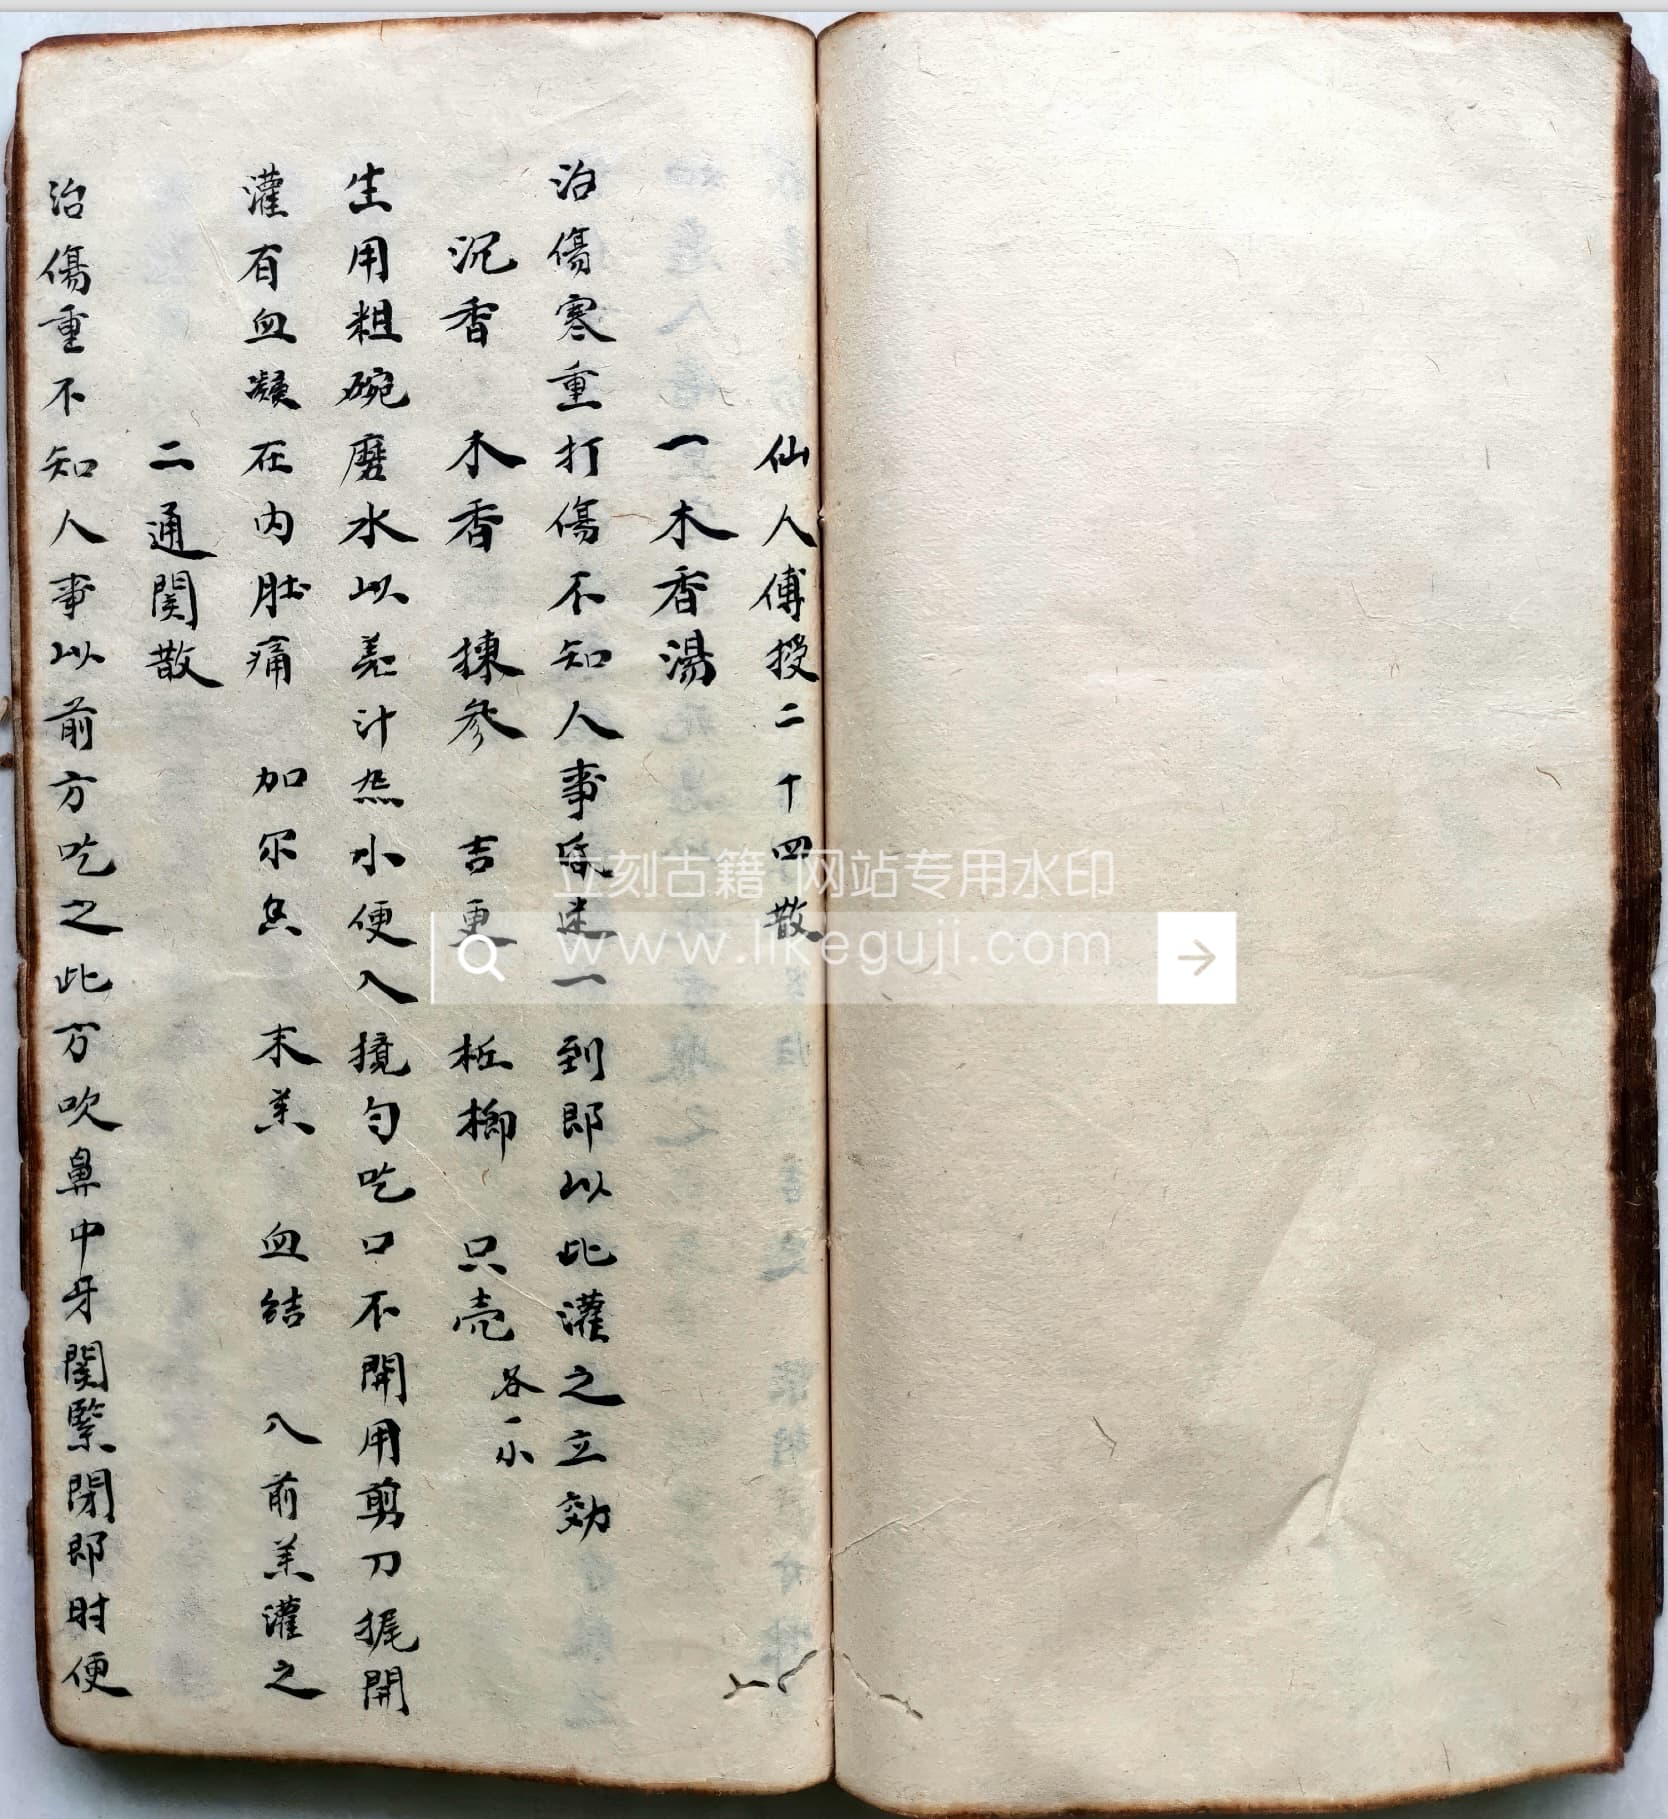 仙人傅授二十四散
一木香湯
治傷寒重打傷不知人事昏迷一到即以此灌之立効
沉香 木香 揀參 吉更 梹榔 只売 各一小
生用粗碗磨水以羌汁煮小便入撹勻吃口不開用剪刀捤開
灌有血凝在內肚痛 加尔 末薬 血結 入前羔灌之
二通関散
治傷重不知人事以前方吃之此方吹鼻中牙関緊閉即时便
立刻古籍 网站专用水印
www.likeguji.com